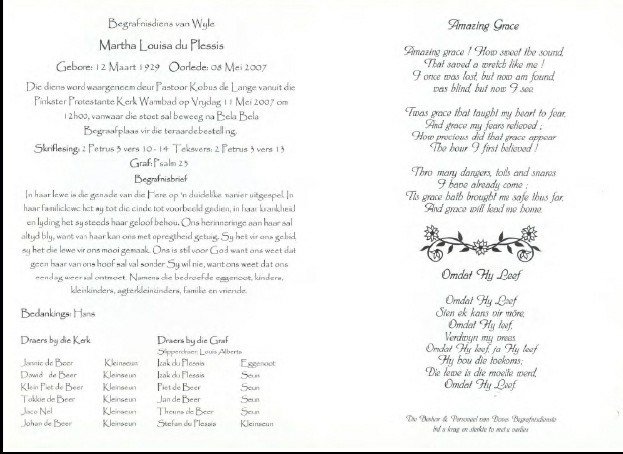 Begrafnisdiens van Wyle
Martha Louisa du Plessis
Gebore: 12 Maart 1929 Oorlede: 08 Mei 2007
Die diens word waargeneem deur Pastoor Kobus de Lange vanuit die
Pinkster Protestante Kerk Warmbad op Vrydag 11 Mei 2007 om
12h00, vanwaar die stoet sal beweeg na Bela Bela
Begraafplaas vir die teraardebestelling.
Skriflesing: 2 Petrus 3 vers 10 - 14 Teksvers: 2 Petrus 3 vers 13
Graf: Psalm 23
Begrafnisbrief
In haar lewe is die genade van die Here op 'n duidelike manier uitgespel. In
haar familielewe het sy tot die einde tot voorbeeld gedien, in haar krankheid
en lyding het sy steeds haar geloof behou. Ons herinneringe aan haar sal
altyd bly, want van haar kan ons met opregtheid getuig. Sy het vir ons gebid,
sy het die lewe vir ons mooi gemaak. Ons is stil voor God want ons weet dat
geen haar van ons hoof sal val sonder Sy wil nie, want ons weet dat ons
eendag weer sal ontmoet. Namens die bedroefde eggenoot, kinders,
kleinkinders, agterkleinkinders, familie en vriende.
Bedankings: Hans
Draers by die Kerk Draers by die Graf
Slipperdraer: Louis Alberts
Jannie de Beer Kleinseun Izak du Plessis Eggenoot
Dawid de Beer Kleinseun Izak du Plessis Seun
Klein Piet de Beer Kleinseun Piet de Beer Seun
Tokkie de Beer Kleinseun Jan de Beer Seun
Jaco Nel Kleinseun Theuns de Beer Seun
Johan de Beer Kleinseun Stefan du Plessis Kleinseun
Amazing Grace
Amazing grace ! How sweet the sound,
That saved a wretch like me !
I once was lost, but now am found,
was blind, but now I see.
Twas grace that taught my heart to fear,
And grace my fears relieved ;
How precious did that grace appear
The hour I first believed !
Thro many dangers, toils and snares
I have already come ;
Tis grace hath brought me safe thus far,
And grace will lead me home.
Omdat Hy Leef
Omdat Hy Leef
Sien ek kans vir môre,
Omdat Hy leef,
Verdwyn my vrees,
Omdat Hy leef, ja Hy leef
Hy hou die toekoms;
Die lewe is die moeite werd,
Omdat Hy Leef.
Die Bestuur & Personeel van Doves Begrafnisdienste
bid u krag en sterkte toe met u verlies